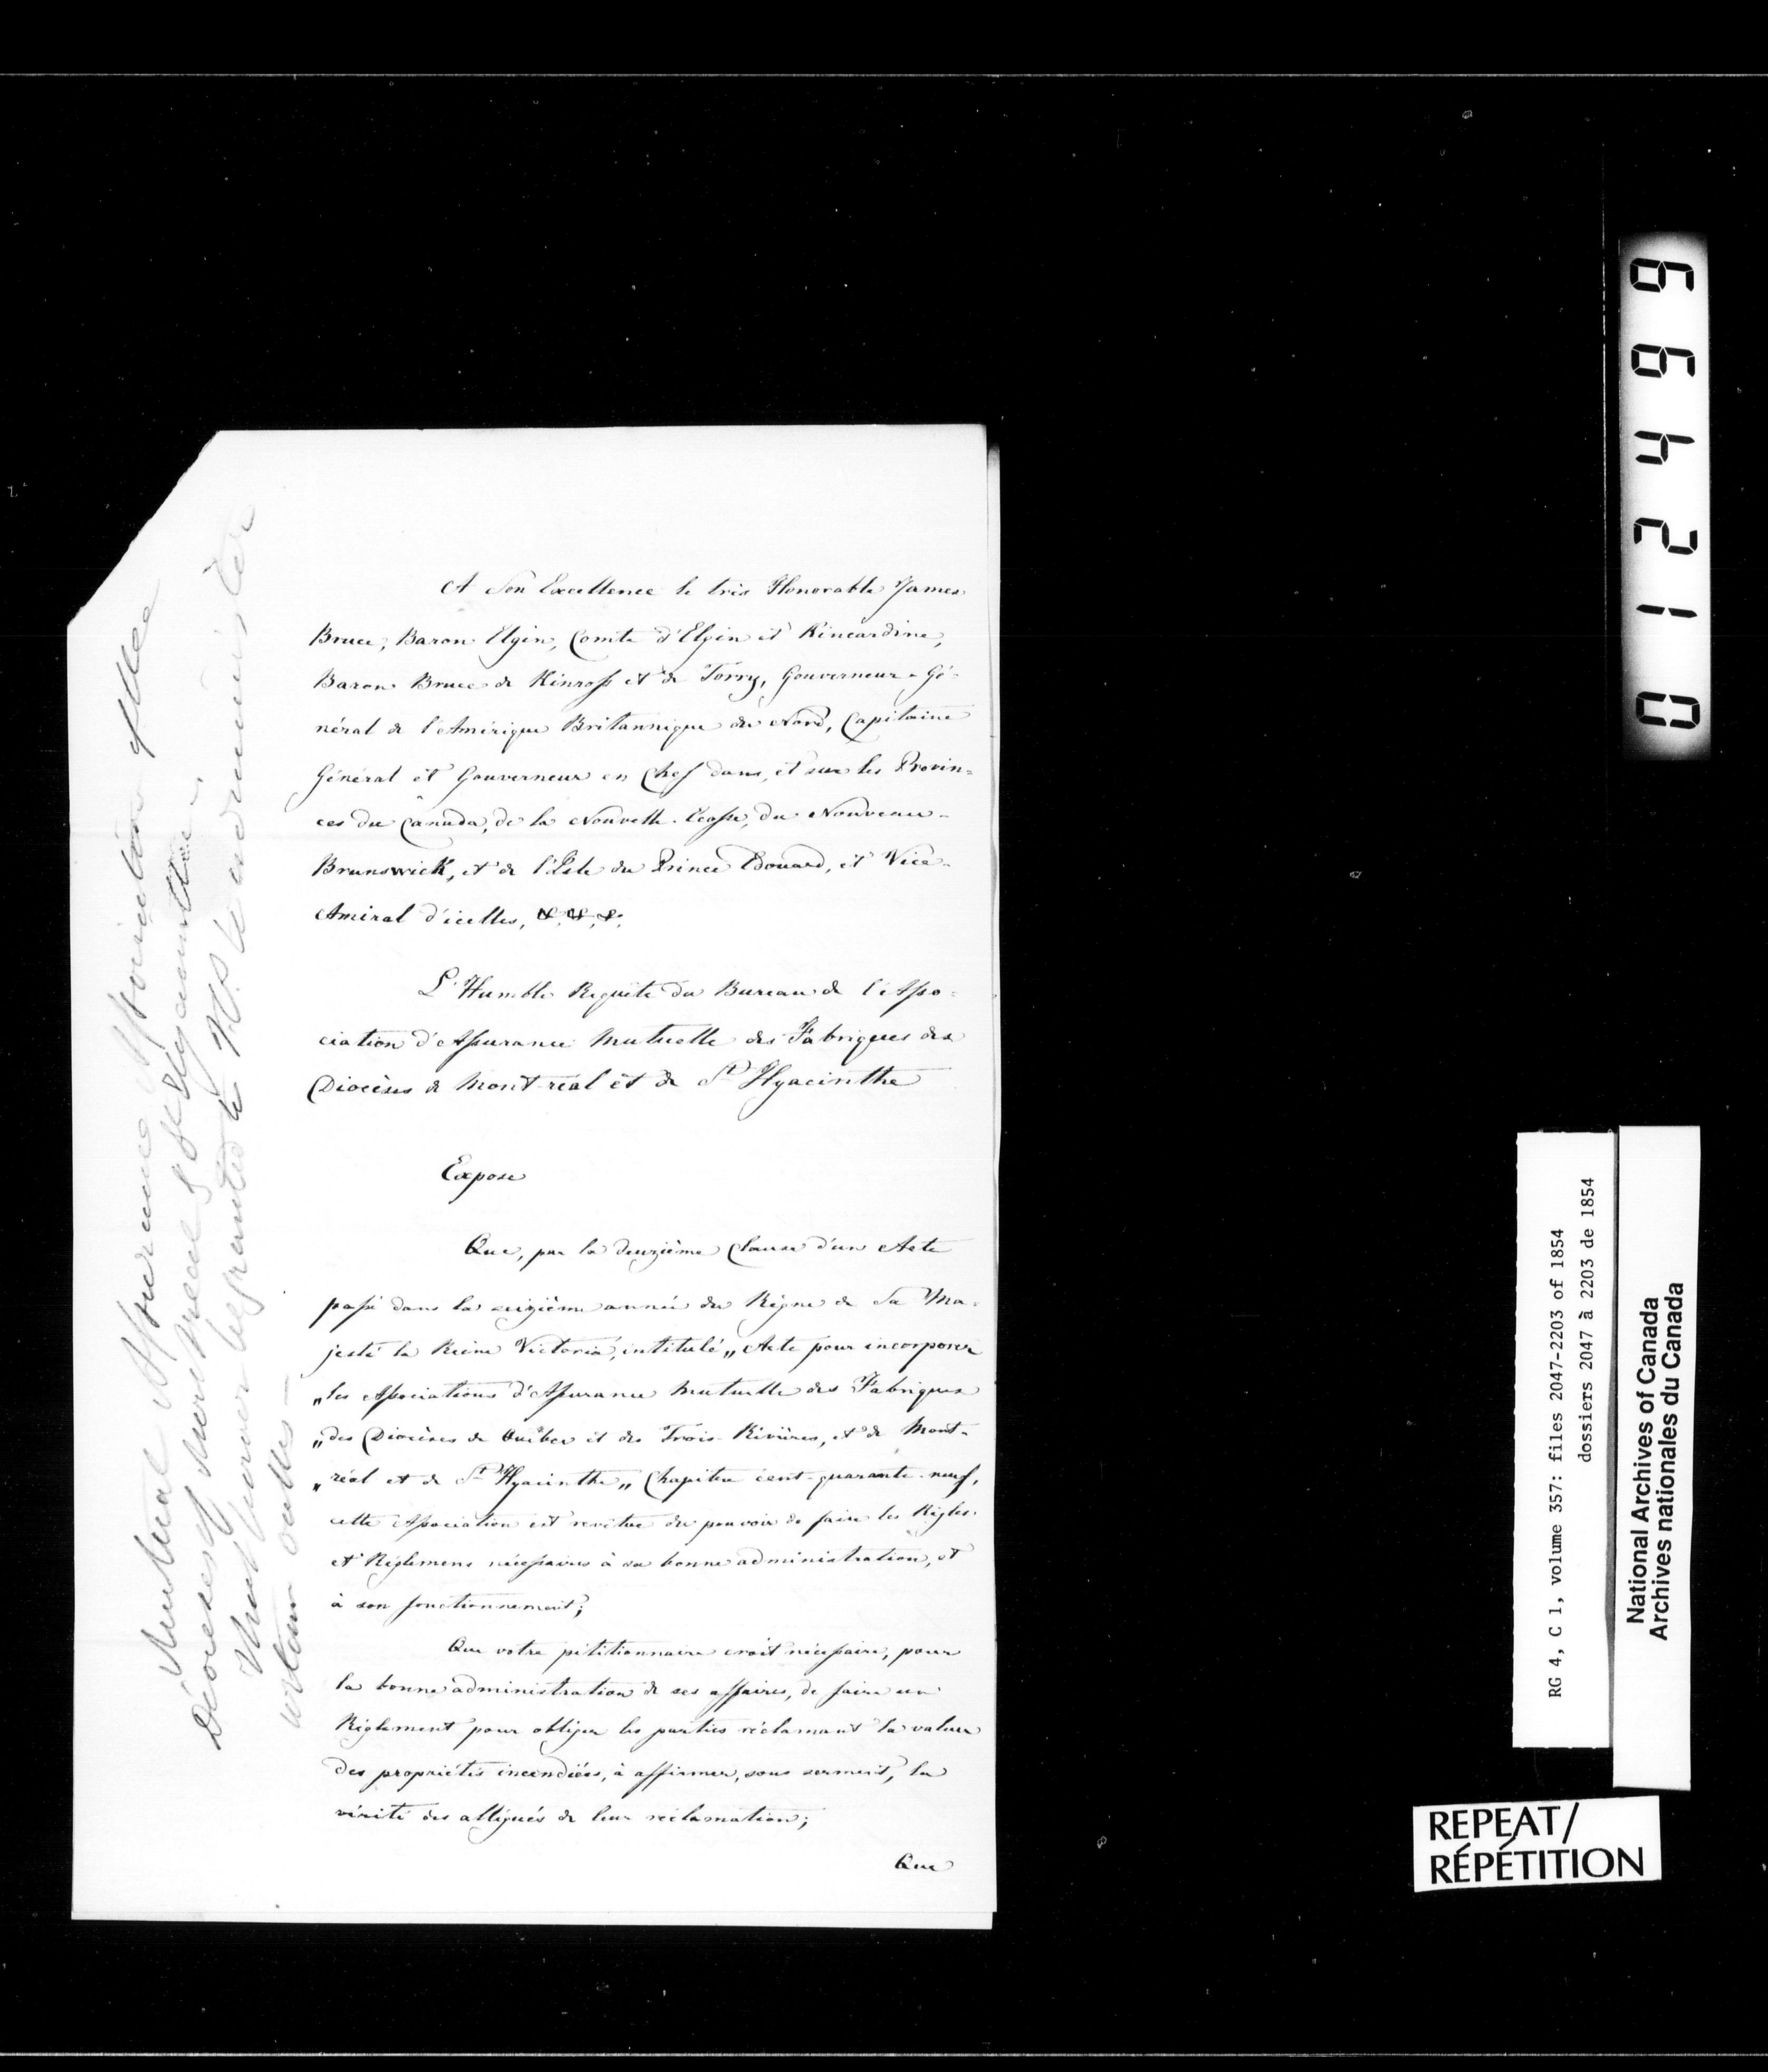 A Son Excellence le très Honorable James
Bruce, Baron Elgin, Comte d'Elgin et Kincardine,
Baron Bruce de Kinross et de Torry, Gouverneur-Gé-
néral de l'Amérique Britannique du Nord, Capitaine
Général et Gouverneur en Chef dans, et sur les Provin-
ces du Canada, de la Nouvelle-Ecosse, du Nouveau-
Brunswick, et de l'Isle du Prince Edouard, et Vice-
Amiral d'icelles, &, &, &;
L'Humble Requête du Bureau de l'Asso-
ciation d'Assurance Mutuelle des Fabriques des
Diocèses de Montréal et de St Hyacinthe
Expose
Que, par la deuxième Clause d'un Acte
passé dans la seizième année du Règne de Sa Ma-
jesté la Reine Victoria, intitulé „Acte pour incorporer
„les Associations d'Assurance Mutuelle des Fabriques
„des Diocèses de Québec et des Trois-Rivières, et de Mont-
„réal et de St Hyacinthe„ Chapitre cent-quarante-neuf,
cette Association est revêtue du pouvoir de faire les Règles
et Règlemens nécessaires à sa bonne administration, et
à son fonctionnement;
Que votre pétitionnaire croit nécessaire, pour
la bonne administration de ses affaires, de faire un
Règlement pour obliger les parties réclamant la valeur
des propriétés incendiées, à affirmer, sous serment, la
vérité des allégués de leur réclamation;
Que
Mutual Assurance Association of the
Dioceses of Montreal & St Hyacinthe
That power be granted to the J.P. to administer
certain oaths—
664210
RG 4, C 1, volume 357: files 2047-2203 of 1854
dossiers 2047 à 2203 de 1854
National Archives of Canada
Archives nationales du Canada
REPEAT/
RÉPÉTITION